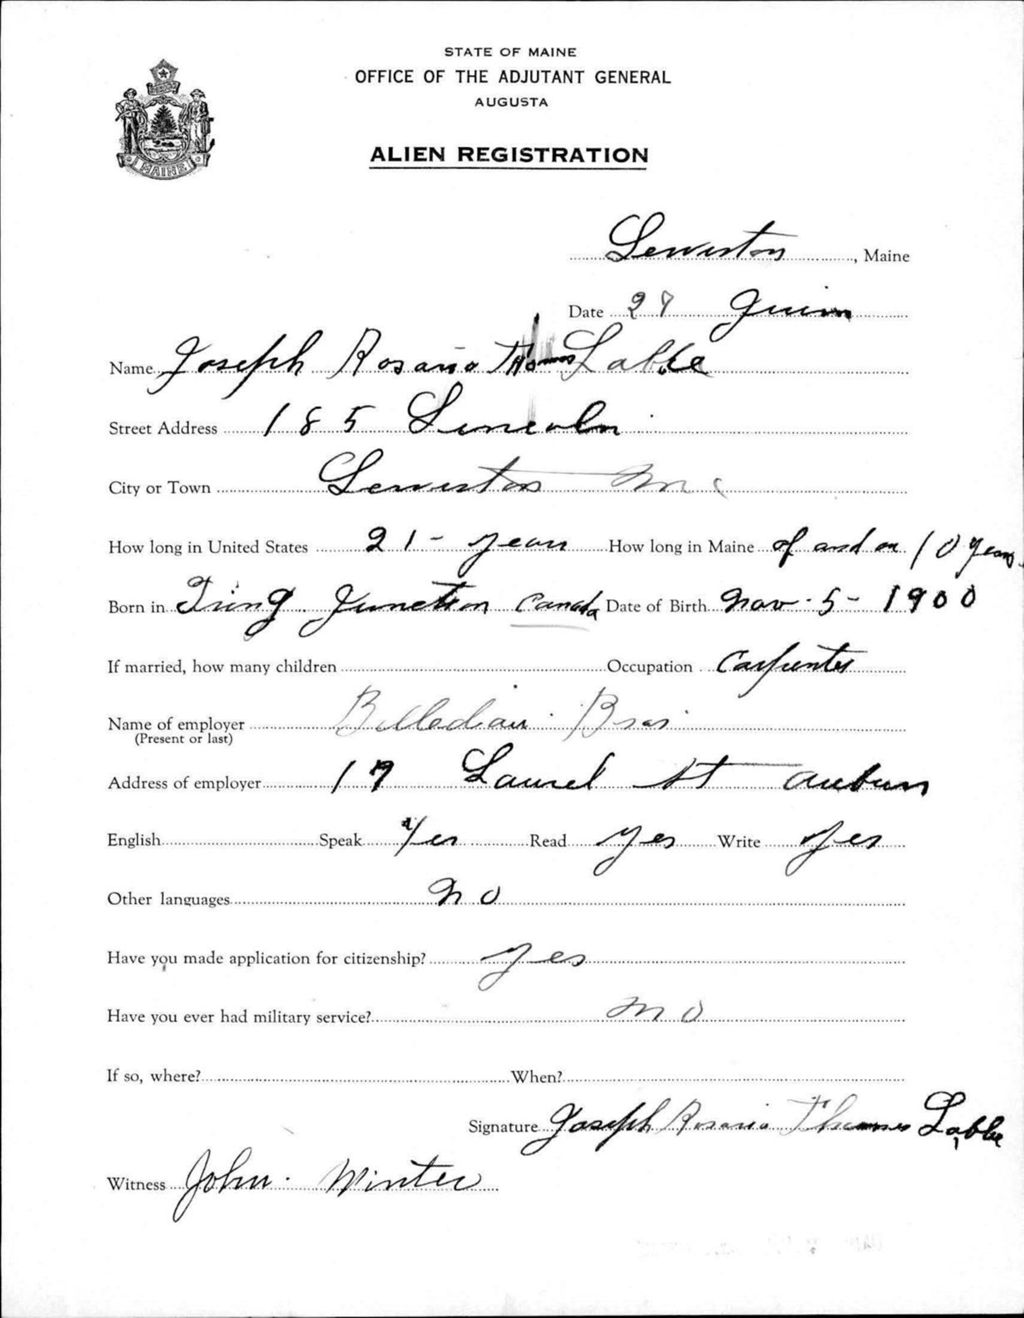 STATE OF MAINE
OFFICE OF THE ADJUTANT GENERAL
AUGUSTA
ALIEN REGISTRATION
MAINE
Lewiston, Maine
Date 27 Juin
Name Joseph Rosario Thomas Labbe
Street Address 185 Lincoln
City or Town Lewiston Me
How long in United States 21 - years How long in Maine of and on 10 years
Born in Tring Junction Canada Date of Birth Nov - 5 - 1900
If married, how many children Occupation Carpenter
Name of employer Bros.
(Present or last)
Address of employer 17 Laurel St Auburn
English Speak Yes Read Yes Write Yes
Other languages No
Have you made application for citizenship? Yes
Have you ever had military service? No
If so, where? When?
Signature Joseph Rosario Thomas Labbe
Witness John Winter